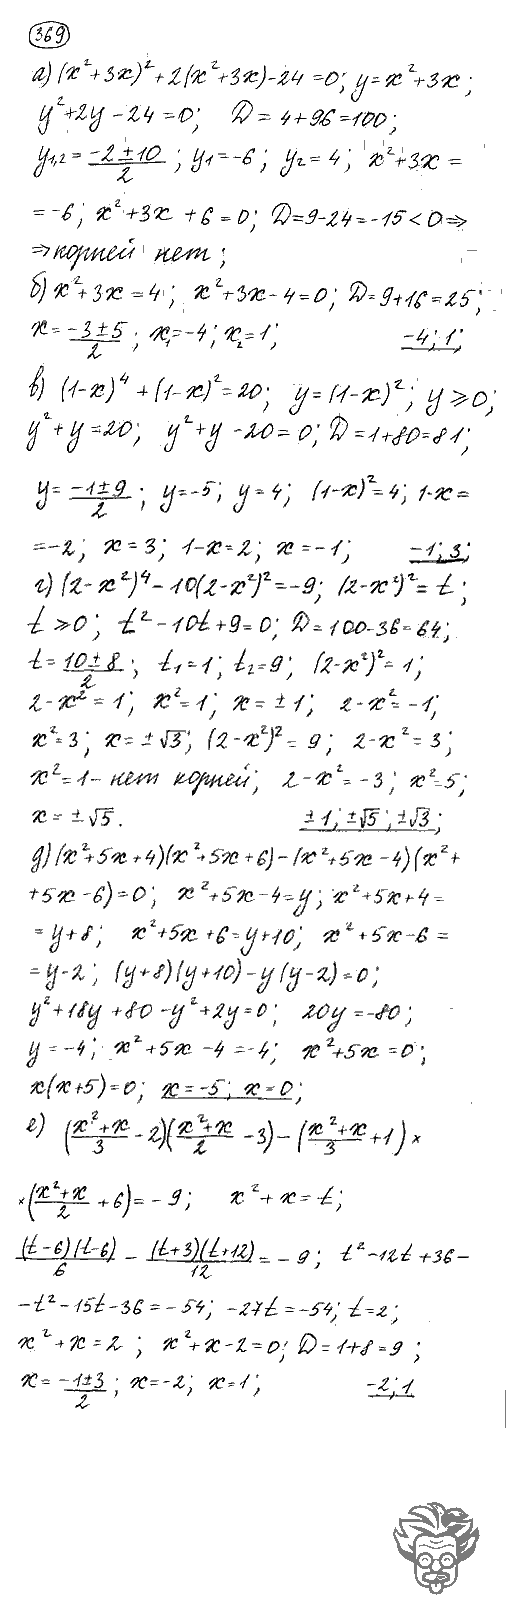 369
а) (x²+3x)²+2(x²+3x)-24=0; y=x²+3x;
y²+2y-24=0; D=4+96=100;
y₁,₂=(-2±10)/2; y₁=-6; y₂=4; x²+3x=
=-6; x²+3x+6=0; D=9-24=-15<0⇒
⇒корней нет;
б) x²+3x=4; x²+3x-4=0; D=9+16=25;
x=(-3±5)/2; x₁=-4; x₂=1; -4; 1;
в) (1-x)⁴+(1-x)²=20; y=(1-x)²; y⩾0;
y²+y=20; y²+y-20=0; D=1+80=81;
y=(-1±9)/2; y=-5; y=4; (1-x)²=4; 1-x=
=-2; x=3; 1-x=2; x=-1; -1; 3;
г) (2-x²)⁴-10(2-x²)²=-9; (2-x²)²=t;
t⩾0; t²-10t+9=0; D=100-36=64;
t=(10±8)/2; t₁=1; t₂=9; (2-x²)²=1;
2-x²=1; x²=1; x=±1; 2-x²=-1;
x²=3; x=±√3; (2-x²)²=9; 2-x²=3;
x²=1- нет корней; 2-x²=-3; x²=5;
x=±√5. ±1; ±√5; ±√3;
д) (x²+5x+4)(x²+5x+6)-(x²+5x-4)(x²+
+5x-6)=0; x²+5x-4=y; x²+5x+4=
=y+8; x²+5x+6=y+10; x²+5x-6=
=y-2; (y+8)(y+10)-y(y-2)=0;
y²+18y+80-y²+2y=0; 20y=-80;
y=-4; x²+5x-4=-4; x²+5x=0;
x(x+5)=0; x=-5; x=0;
е) ((x²+x)/3-2)((x²+x)/2-3)-((x²+x)/3+1)×
×((x²+x)/2+6)=-9; x²+x=t;
(t-6)(t-6)/6-(t+3)(t+12)/12=-9; t²-12t+36-
-t²-15t-36=-54; -27t=-54; t=2;
x²+x=2; x²+x-2=0; D=1+8=9;
x=(-1±3)/2; x=-2; x=1; -2; 1